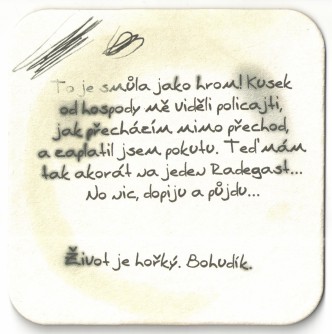 To je smůla jako hrom! Kusek
od hospody mě viděli policajti,
jak přecházím mimo přechod,
a zaplatil jsem pokutu. Teď mám
tak akorát na jeden Radegast...
No nic, dopiju a půjdu...
Život je hořký. Bohudík.